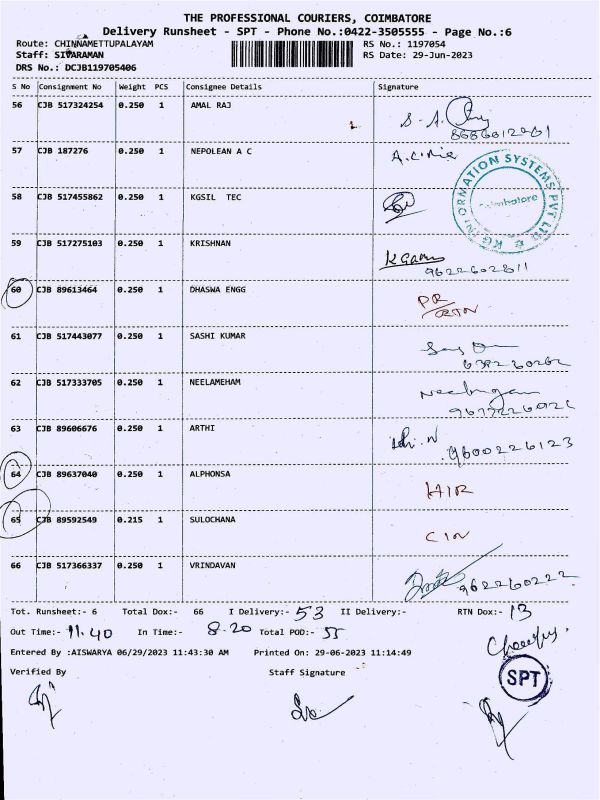 THE PROFESSIONAL COURIERS, COIMBATORE
Delivery Runsheet - SPT - Phone No.:0422-3505555 - Page No.:6
Route: CHINNAMETTUPALAYAM RS No.: 1197054
Staff: SIVARAMAN RS Date: 29-Jun-2023
DRS No.: DCJB119705406
S No Consignment No Weight PCS Consignee Details Signature
56 CJB 517324254 0.250 1 AMAL RAJ
57 CJB 187276 0.250 1 NEPOLEAN A C
58 CJB 517455862 0.250 1 KGSIL TEC
INFORMATION SYSTEMS PVT LTD
Coimbatore
59 CJB 517275103 0.250 1 KRISHNAN
9622602811
60 CJB 89613464 0.250 1 DHASWA ENGG
61 CJB 517443077 0.250 1 SASHI KUMAR
62 CJB 517333705 0.250 1 NEELAMEHAM
63 CJB 89606676 0.250 1 ARTHI
9600226123
64 CJB 89637040 0.250 1 ALPHONSA
65 CJB 89592549 0.215 1 SULOCHANA
66 CJB 517366337 0.250 1 VRINDAVAN
Tot. Runsheet:- 6 Total Dox:- 66 I Delivery:- 53 II Delivery:- RTN Dox:- 13
Out Time:- 11.40 In Time:- 8.20 Total POD:- 55
Entered By :AISWARYA 06/29/2023 11:43:30 AM Printed On: 29-06-2023 11:14:49
Verified By Staff Signature
SPT